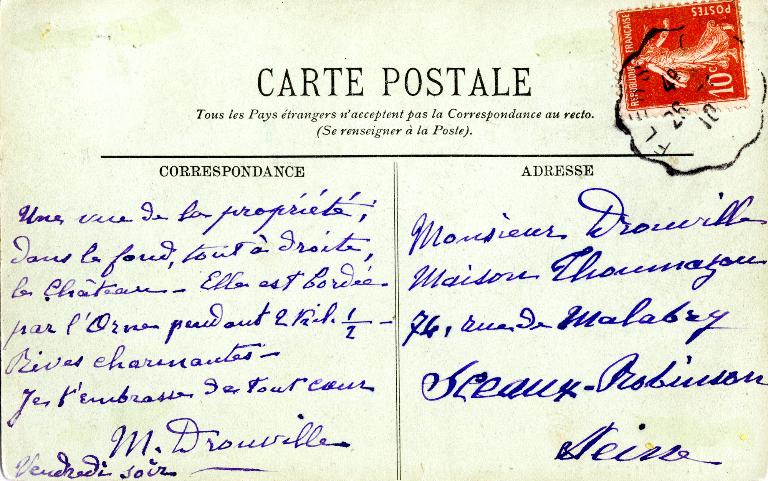 CARTE POSTALE
Tous les Pays étrangers n'acceptent pas la Correspondance au recto.
(Se renseigner à la Poste).
REPUBLIQUE FRANÇAISE
POSTES
10c
CORRESPONDANCE
Une vue de la propriété;
dans le fond, tout à droite,
le Château – Elle est bordée
par l'Orne pendant 2 Kil. 1/2 –
Rives charmantes –
Je t'embrasse de tout cœur
M. Drouville
Vendredi soir
ADRESSE
Monsieur Drouville
Maison Thoumazou
74, rue de Malabry
Sceaux-Robinson
Seine